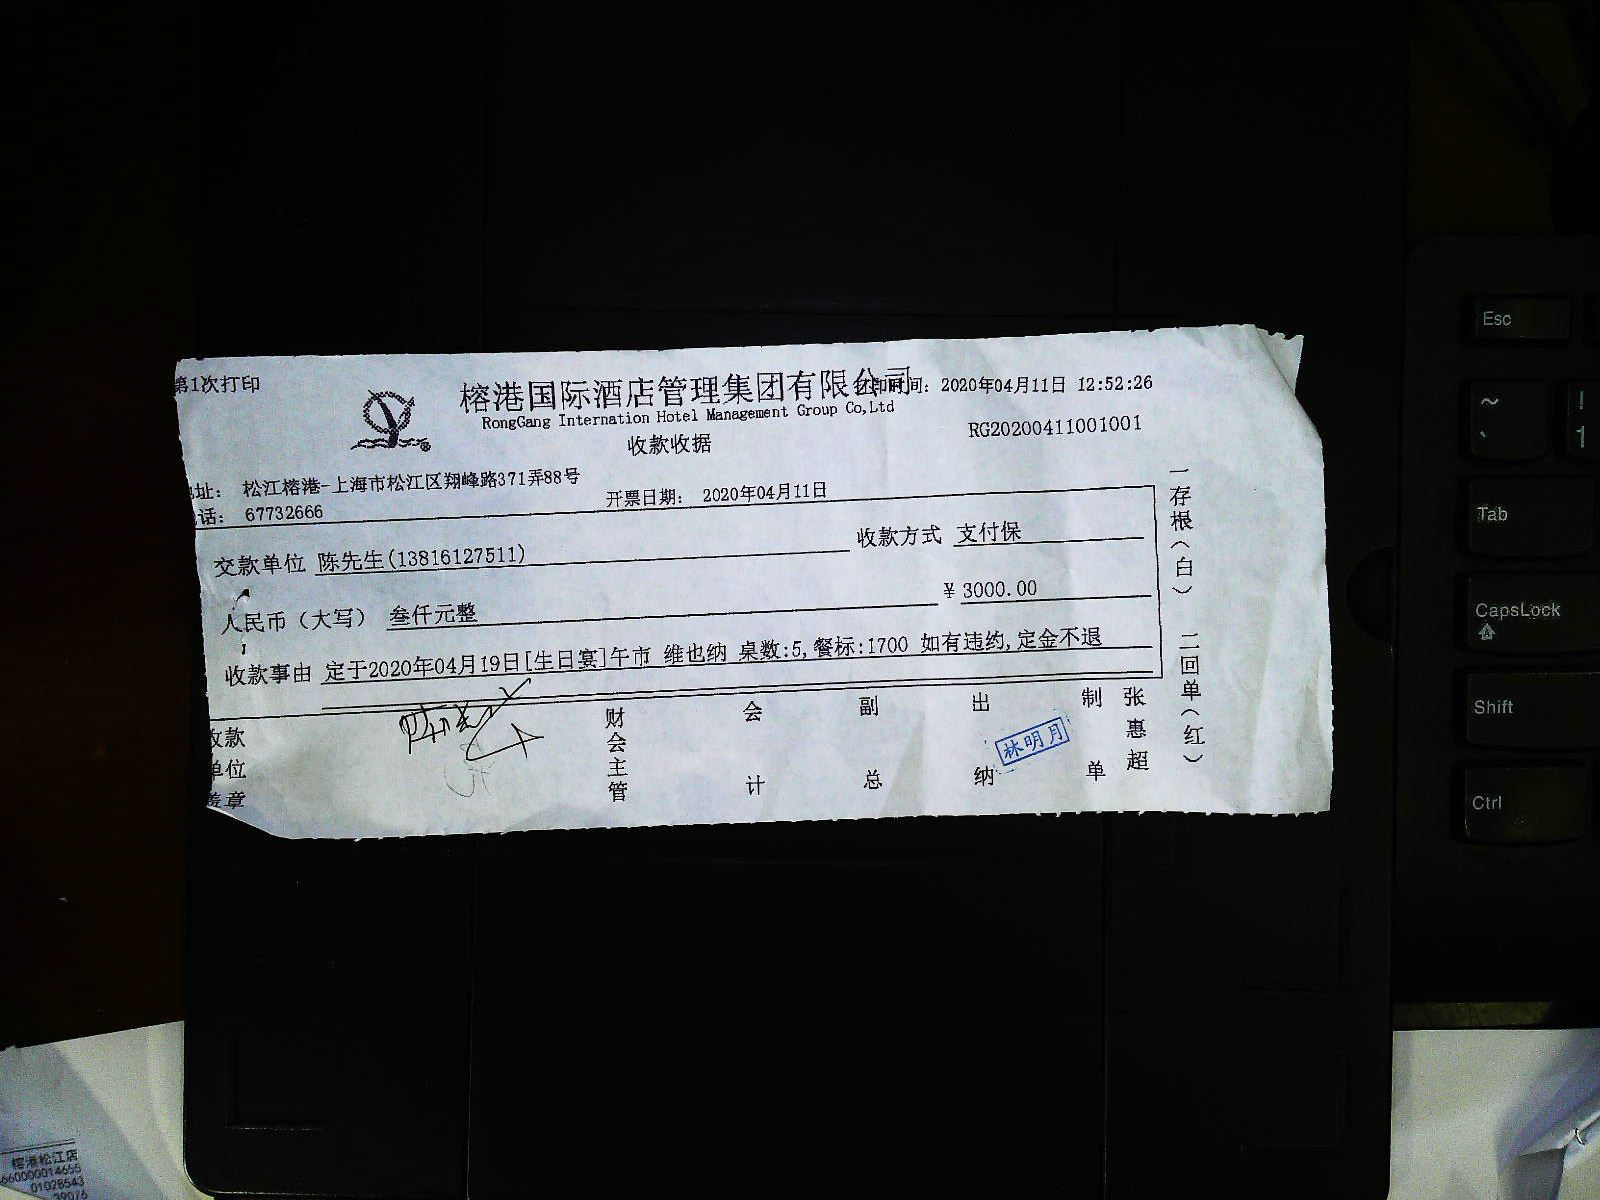 第1次打印
榕港国际酒店管理集团有限公司
打印时间: 2020年04月11日 12:52:26
RongGang Internation Hotel Management Group Co,Ltd
收款收据
RG20200411001001
地址: 松江榕港-上海市松江区翔峰路371弄88号
电话: 67732666
开票日期: 2020年04月11日
交款单位 陈先生(13816127511)
收款方式 支付保
人民币(大写) 叁仟元整
¥ 3000.00
收款事由 定于2020年04月19日[生日宴]午市 维也纳 桌数:5,餐标:1700 如有违约,定金不退
收款单位盖章
财会主管
会计
副总
出纳
林明月
制单
张惠超
一存根(白) 二回单(红)
Esc
~
`
!
1
Tab
CapsLock
Shift
Ctrl
榕港松江店
660000014655
01028543
39076